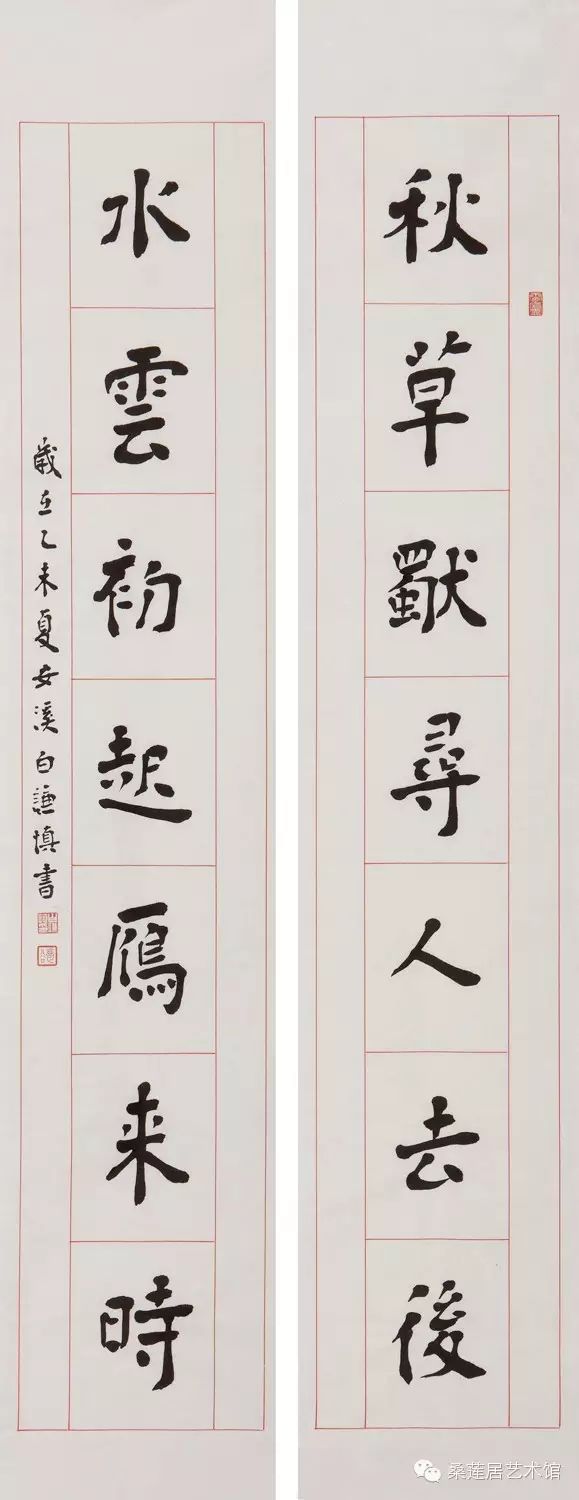 秋草獨尋人去後
水雲初起鴈来時
歲在乙未夏安溪白謙慎書
桑莲居艺术馆